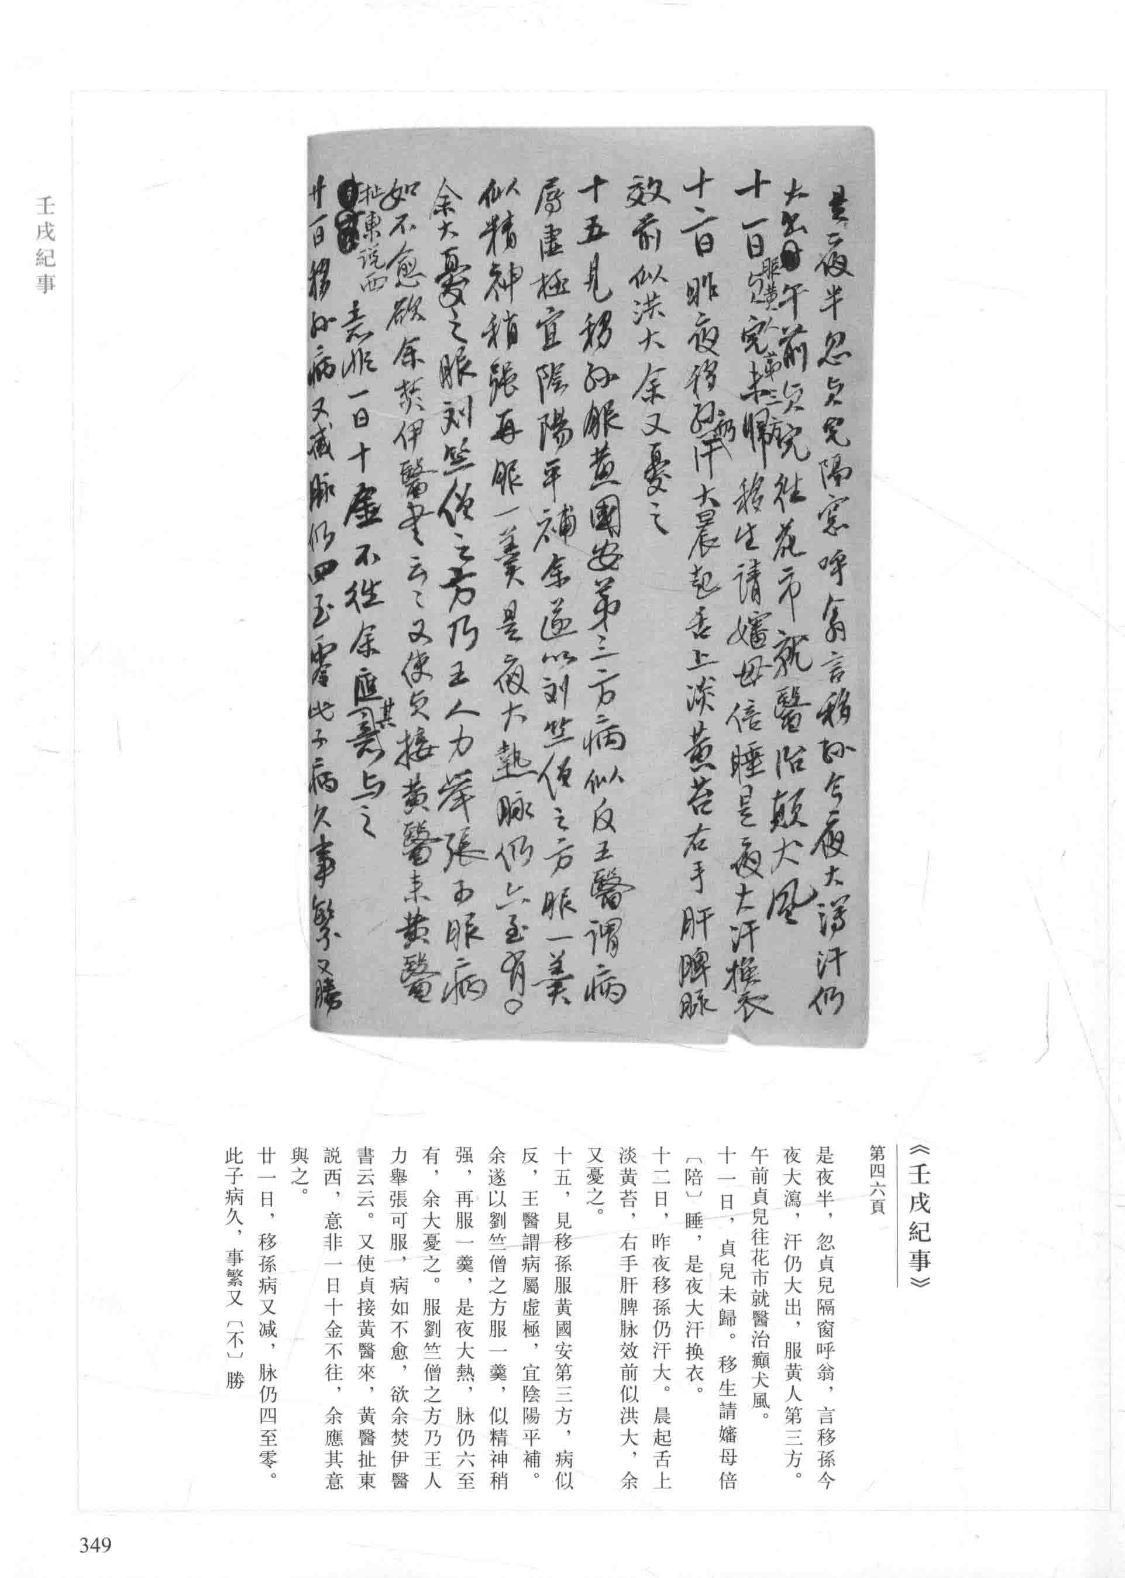 壬戌紀事
是夜半忽貞児隔窓呼翁言移孙今夜大瀉汗仍
大出午前貞児往花市就醫治颠犬風
服黄人第三方
十一日貞児未歸移生請嬸母倍睡是夜大汗换衣
十二日昨夜移孙仍汗大晨起舌上淡黄苔右手肝脾脉
效前似洪大余又憂之
十五見移孙服黄國安第三方病似反王醫謂病
屬虚極宜陰陽平補余遂以刘竺僧之方服一羹
似精神稍强再服一羹是夜大熱脉仍六至有〇
余大憂之服刘竺僧之方乃王人力举張可服病
如不愈欲余焚伊醫書云〻又使貞接黄醫来黄醫
扯東説西意非一日十金不往余應其意与之
廿一日移孙病又减脉仍四至零此子病久事繁又勝
《壬戌紀事》
第四六頁
是夜半，忽貞兒隔窗呼翁，言移孫今
夜大瀉，汗仍大出，服黃人第三方。
午前貞兒往花市就醫治癲犬風。
十一日，貞兒未歸。移生請嬸母倍
〔陪〕睡，是夜大汗换衣。
十二日，昨夜移孫仍汗大。晨起舌上
淡黃苔，右手肝脾脉效前似洪大，余
又憂之。
十五，見移孫服黃國安第三方，病似
反，王醫謂病屬虛極，宜陰陽平補。
余遂以劉竺僧之方服一羹，似精神稍
强，再服一羹，是夜大熱，脉仍六至
有，余大憂之。服劉竺僧之方乃王人
力舉張可服，病如不愈，欲余焚伊醫
書云云。又使貞接黃醫來，黃醫扯東
説西，意非一日十金不往，余應其意
與之。
廿一日，移孫病又减，脉仍四至零。
此子病久，事繁又〔不〕勝
349